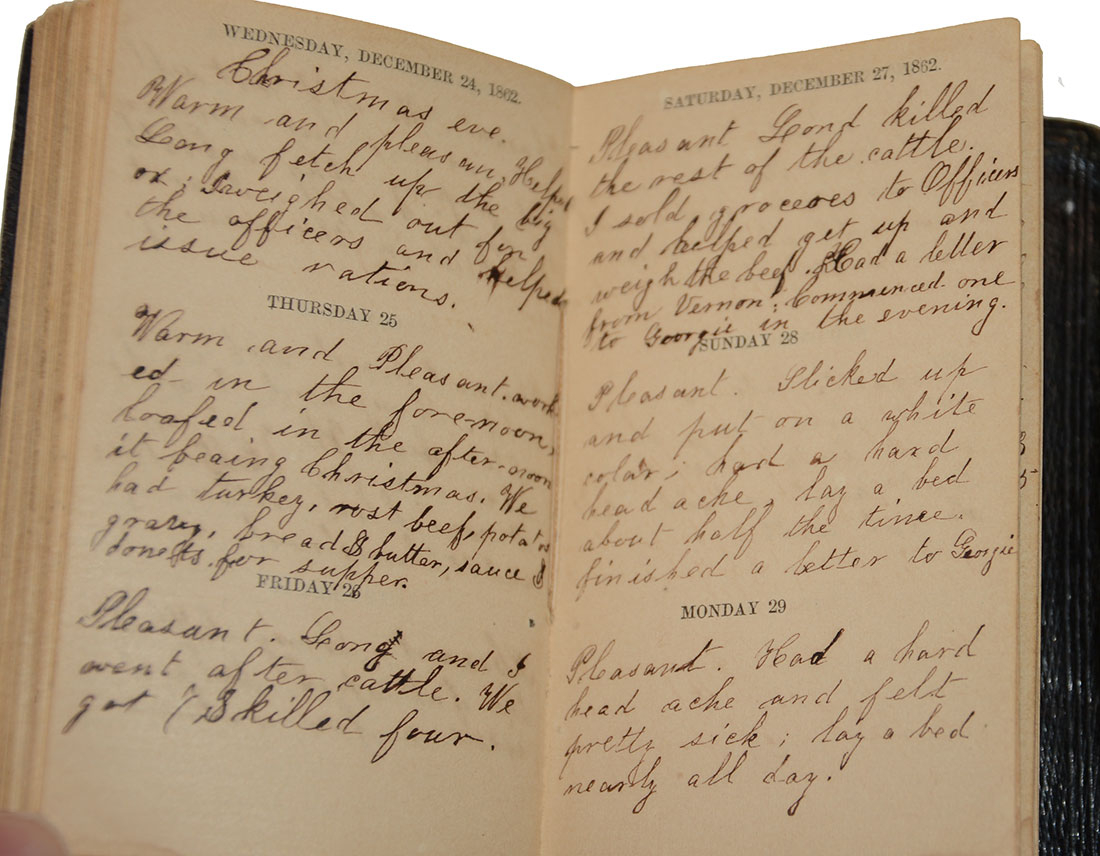 WEDNESDAY, DECEMBER 24, 1862.
Christmas eve.
Warm and pleasan, Helped
Long fetch up the big
ox; I weighed out for
the officers and helped
issue rations.
THURSDAY 25
Warm and Pleasant. work
ed in the fore-noon,
loafed in the after-noon
it beaing Christmas. We
had turkey, rost beef, potatos
gravy, bread & butter, sauce &
donets for supper.
FRIDAY 26
Pleasant. Long and I
went after cattle. We
got 7 & killed four.
SATURDAY, DECEMBER 27, 1862.
Pleasant Long killed
the rest of the cattle.
I sold groceres to Officers
and helped get up and
weigh the beef. Had a letter
from Vernon; Commenced one
to Georgie in the evening.
SUNDAY 28
Pleasant. Slicked up
and put on a white
colar; had a hard
head ache, lay a bed
about half the time.
finished a letter to Georgie
MONDAY 29
Pleasant. Had a hard
head ache and felt
pretty sick; lay a bed
nearly all day.
3
5